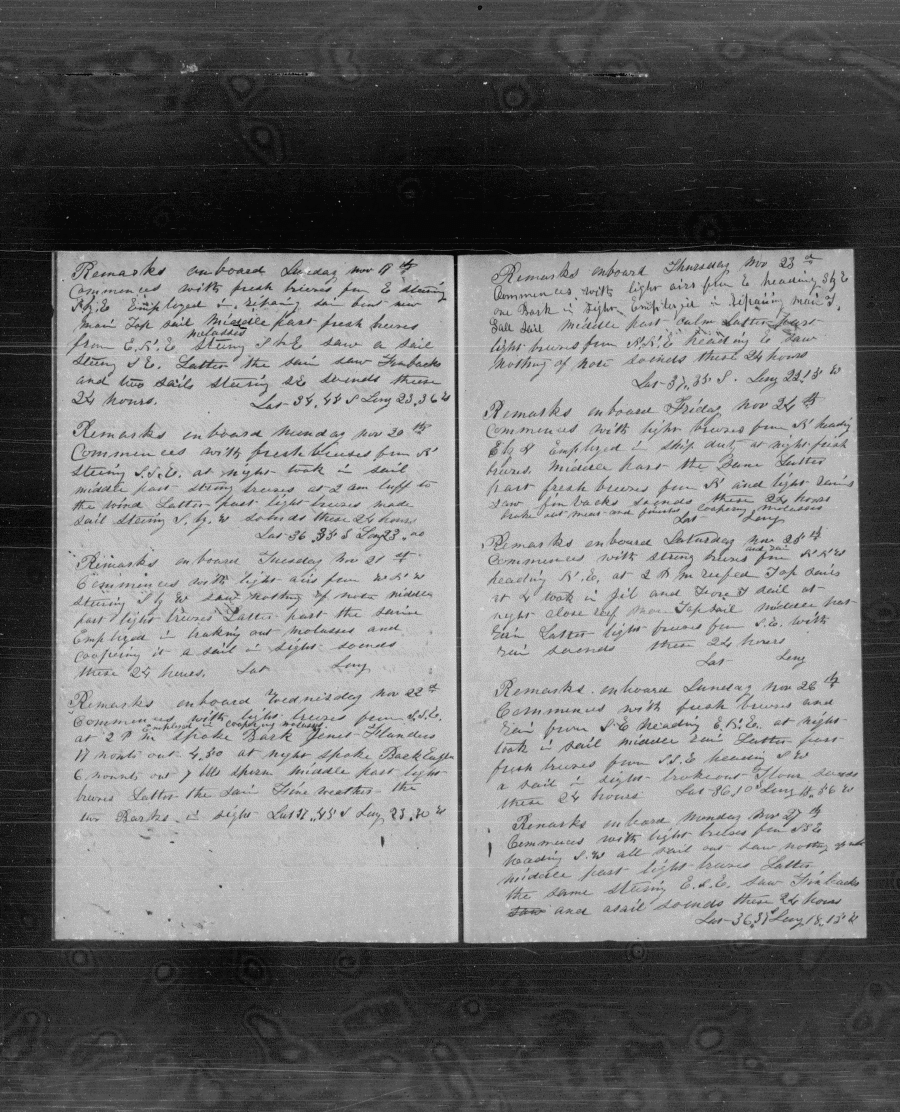 Remarks onboard Sunday nov 19 th
Commences with fresh breeses frm E steering
S by E Employed in repairing sin bent new
main Top sail Middle part fresh breeses
molasses
from E.N.E steering S b E saw a sail
Steering S E. Latter the sam saw Finbacks
and two sails steering S E so ends these
24 hours. Lat 34,,45 S Long 23,,36 W
Remarks onboard Munday nov 20 th
Commences with fresh breeses frm N
Steering S.S.E. at night took in sail
middle part strong breeses at 2 am luff to
the wind Latter part light breeses made
sail Steering S. by. W so ends these 24 hours
Lat 36,,35 S Long 23,,00
Remarks onboard Tuesday nov 21 st
Commences with light airs frm W N W
Steering S by W saw nothing of note middle
part light breeses Latter part the same
Employed in braking out molasses and
coopering it a sail in sight so ends
these 24 houres. Lat Long
Remarks onboard Wednesday nov 22 nd
Commences with light breeses frm S.S.E.
Employed in coopering molases
at 2 P m spoke Bark Janet Flanders
17 months out 450 at night spoke Bark Eagle
6 months out 7 bbls sperm middle part light
breeses Latter the Sam Fine weather the
two Barks in sight Lat 37,,45 S Long 23,,30 W
Remarks onboard Thursday Nov 23 rd
Commences with light airs frm E heading S by E
one Bark in sight Employed in repairing main T,
Gall Sail middle part calm Latter part
light breeses frm N.N.E heading E saw
nothing of note so ends these 24 hours
Lat 37,,35 S. Long 22,,15 W
Remarks onboard Friday Nov 24 th
Commences with light breeses frm N heading
E by S Employed in ship dut at night fresh
breeses. Middle part the Same Latter
part fresh breeses frm N and light rains
saw finbacks so ends these 24 hours
broke out meat and Coopering molasses
Lat Long
Remarks onboard Saturday nov 25 th
and rain
Commences with strong breeses frm N N W
heading N.E. at 2 P m reefed Top Sails
at 4 took in jib and Fore T sail at
night close reef main Topsail middle part
Rain Latter light breeses frm S.E. with
rain so ends these 24 hours
Lat Long
Remarks onboard Sunday Nov 26 th
Commences with fresh breeses and
Rain from S E heading E.N.E. at night
took in sail middle Rain Latter part
fresh breeses frm S.S.E heading S W
a sail in sight broke out Flour so ends
these 24 hours Lat 36,,10 Long 18,,56 W
Remarks onboard Monday Nov 27 th
Commences with light breeses frm S S E
heading S.W all sail out saw nothing of note
middle part light breeses Latter
the same steering E.S.E. saw Finbacks
and a sail so ends these 24 hours
Lat 36,,35 Long 18,,15 W